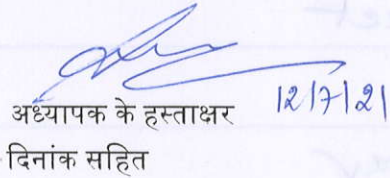 अध्यापक के हस्ताक्षर 12/7/21
दिनांक सहित